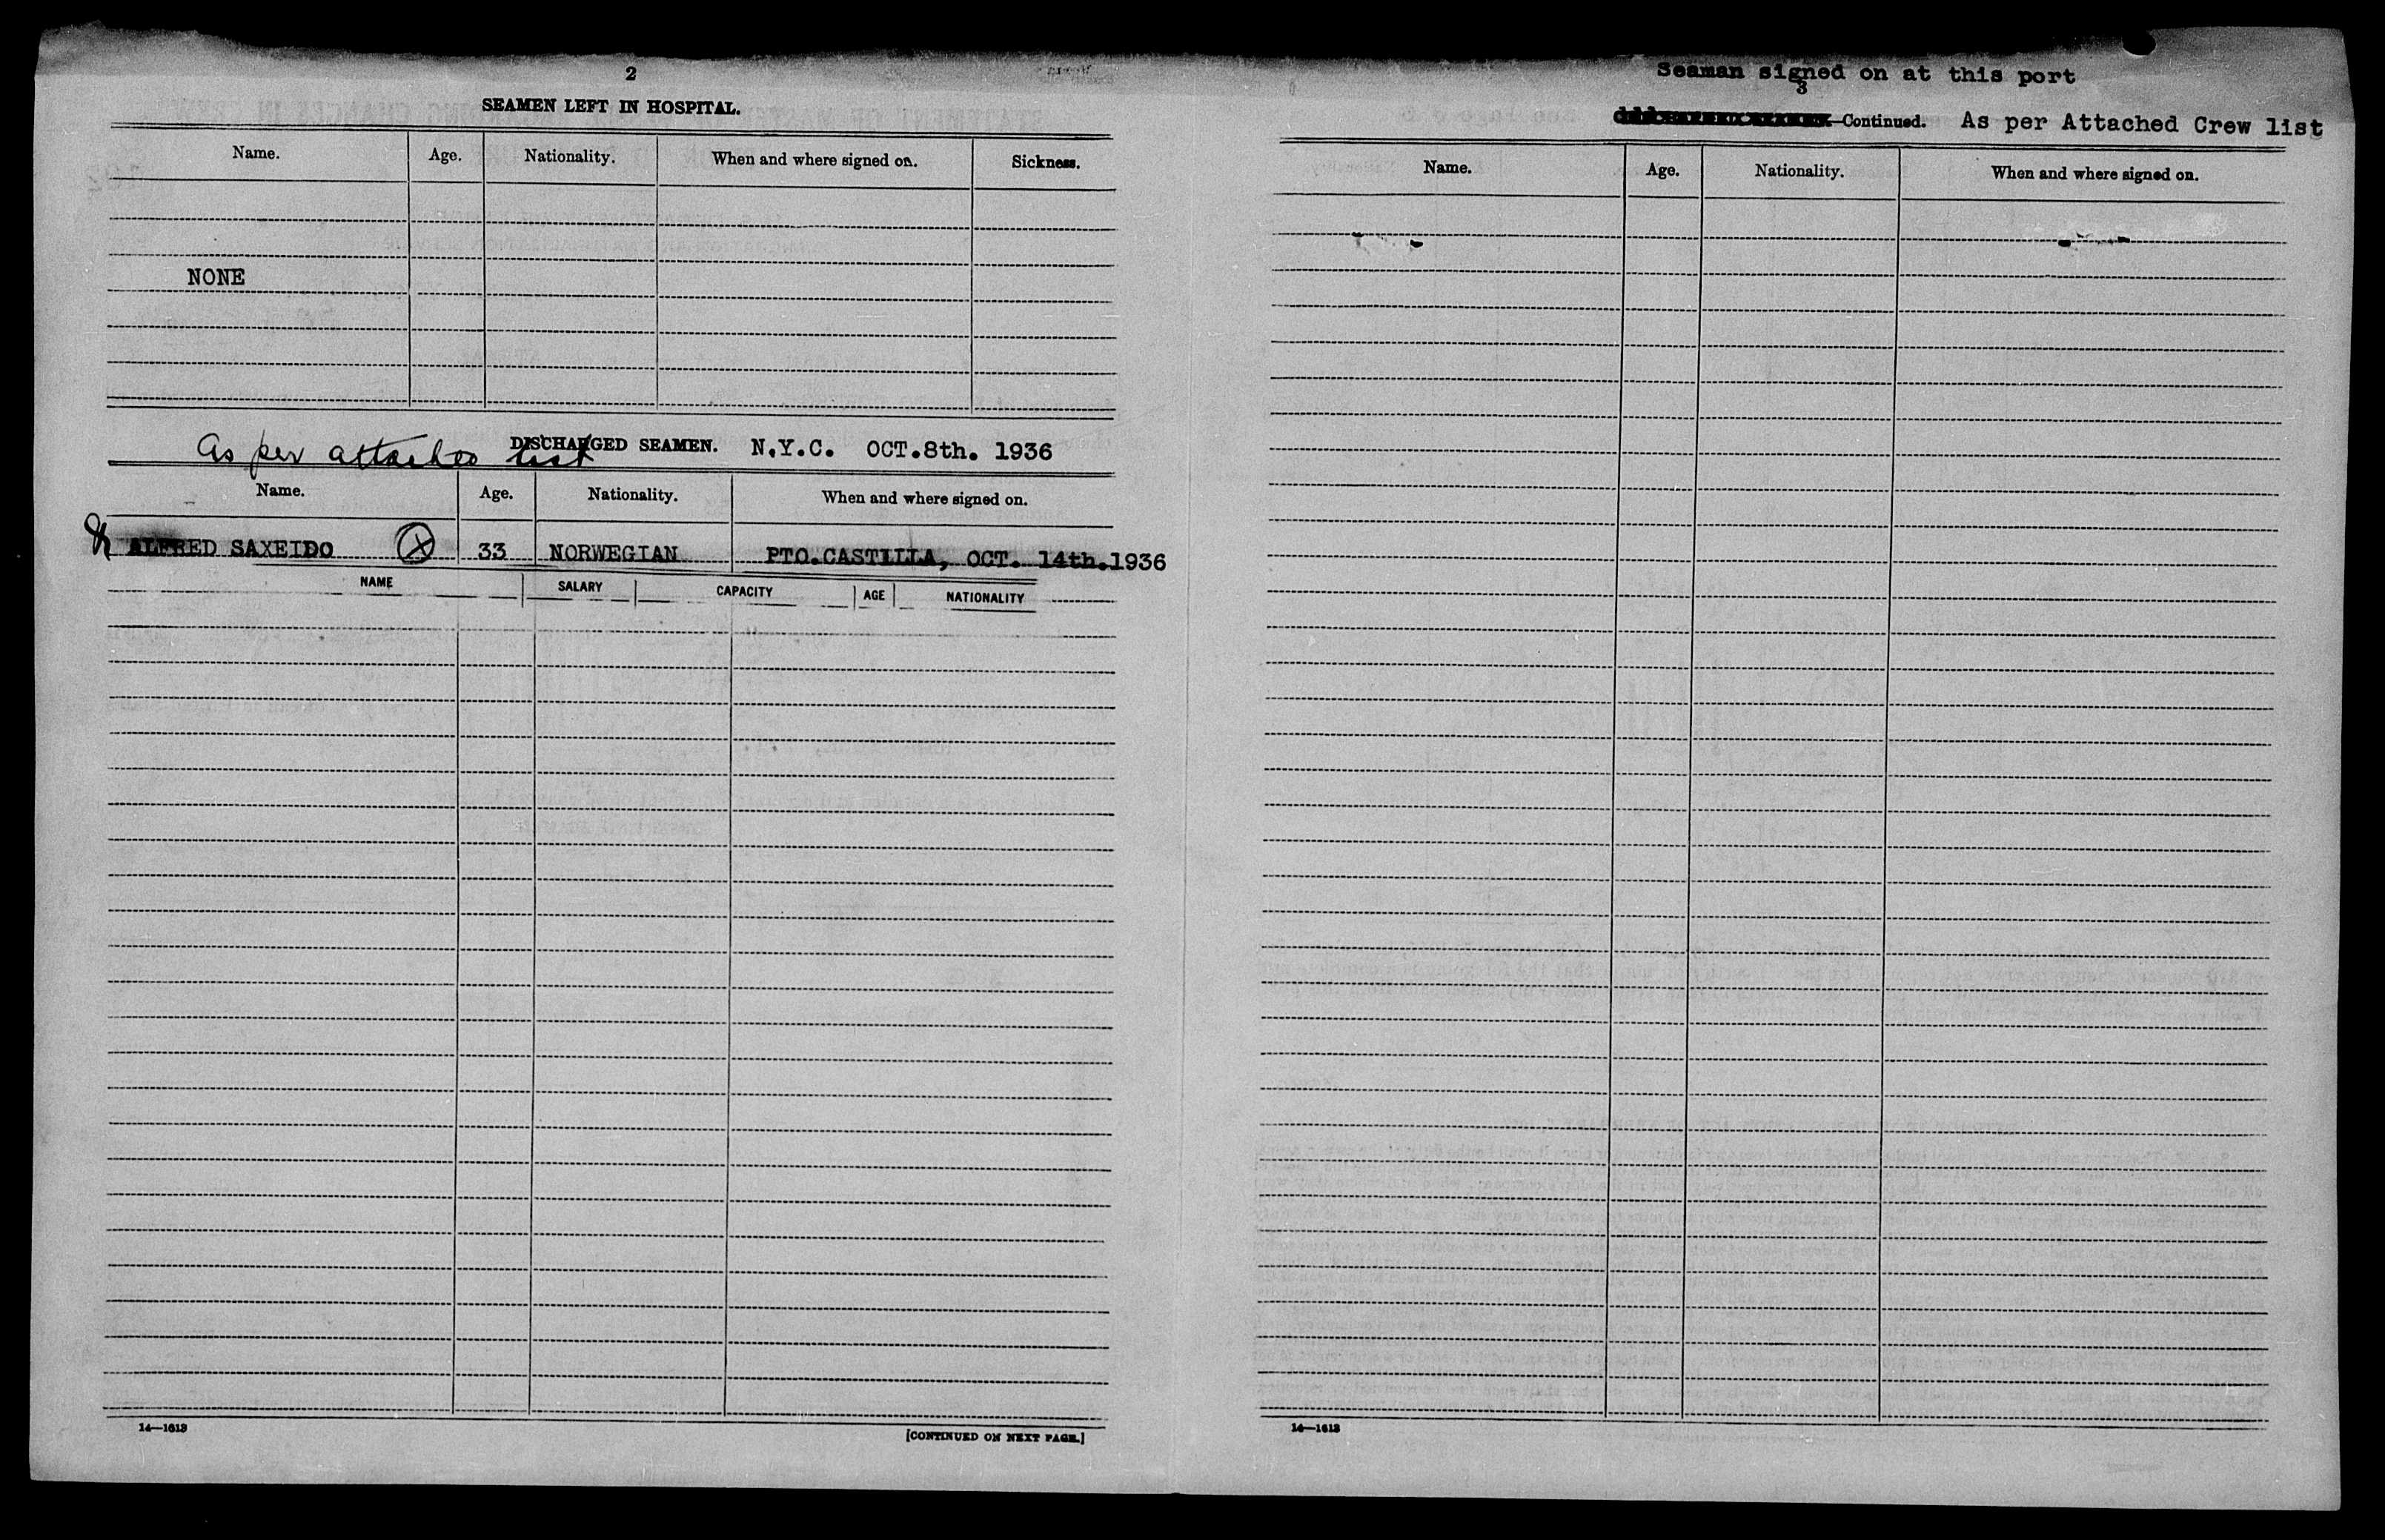 2
SEAMEN LEFT IN HOSPITAL.
Name. Age. Nationality. When and where signed on. Sickness.
NONE
As per attached list DISCHARGED SEAMEN. N.Y.C. OCT.8th. 1936
Name. Age. Nationality. When and where signed on.
ALFRED SAXEIDO X 33 NORWEGIAN PTO.CASTILLA, OCT. 14th.1936
NAME SALARY CAPACITY AGE NATIONALITY
14—1613
[CONTINUED ON NEXT PAGE.]
Seaman signed on at this port
3
Continued. As per Attached Crew list
Name. Age. Nationality. When and where signed on.
14—1613